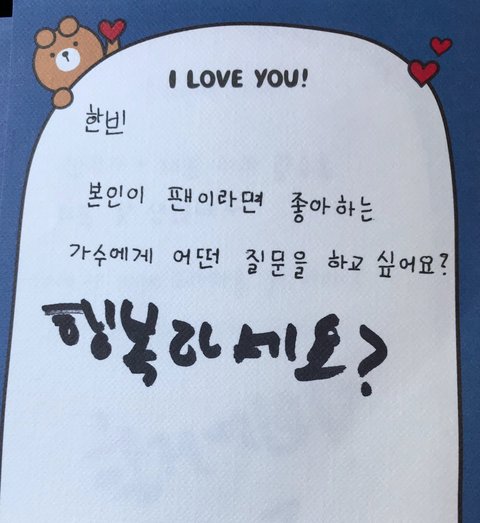 I LOVE YOU!
한빈
본인이 팬이라면 좋아하는
가수에게 어떤 질문을 하고 싶어요?
행복하세요?